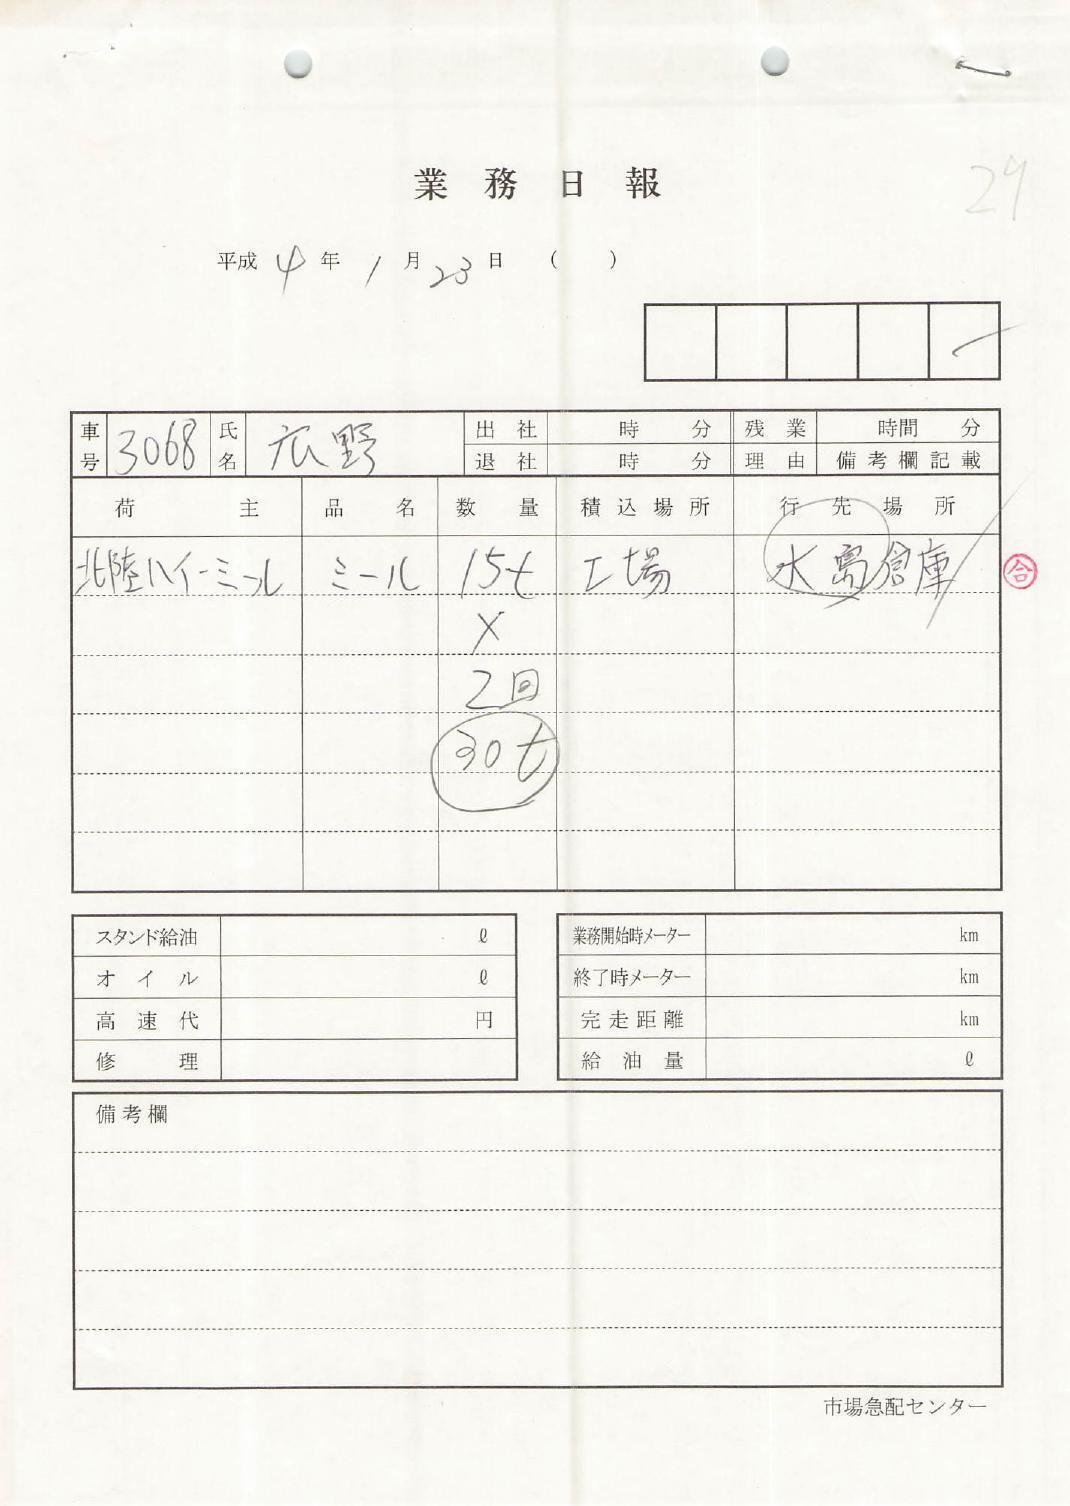 29
業務日報
平成 4 年 1 月 23 日 ( )
車号 3068 氏名 広野 出社 時 分 残業 時間 分
退社 時 分 理由 備考欄記載
荷主 品名 数量 積込場所 行先場所
北陸ハイーミール ミール 15t 工場 水島倉庫 合
X
2回
30t
スタンド給油 ℓ 業務開始時メーター km
オイル ℓ 終了時メーター km
高速代 円 完走距離 km
修理 給油量 ℓ
備考欄
市場急配センター